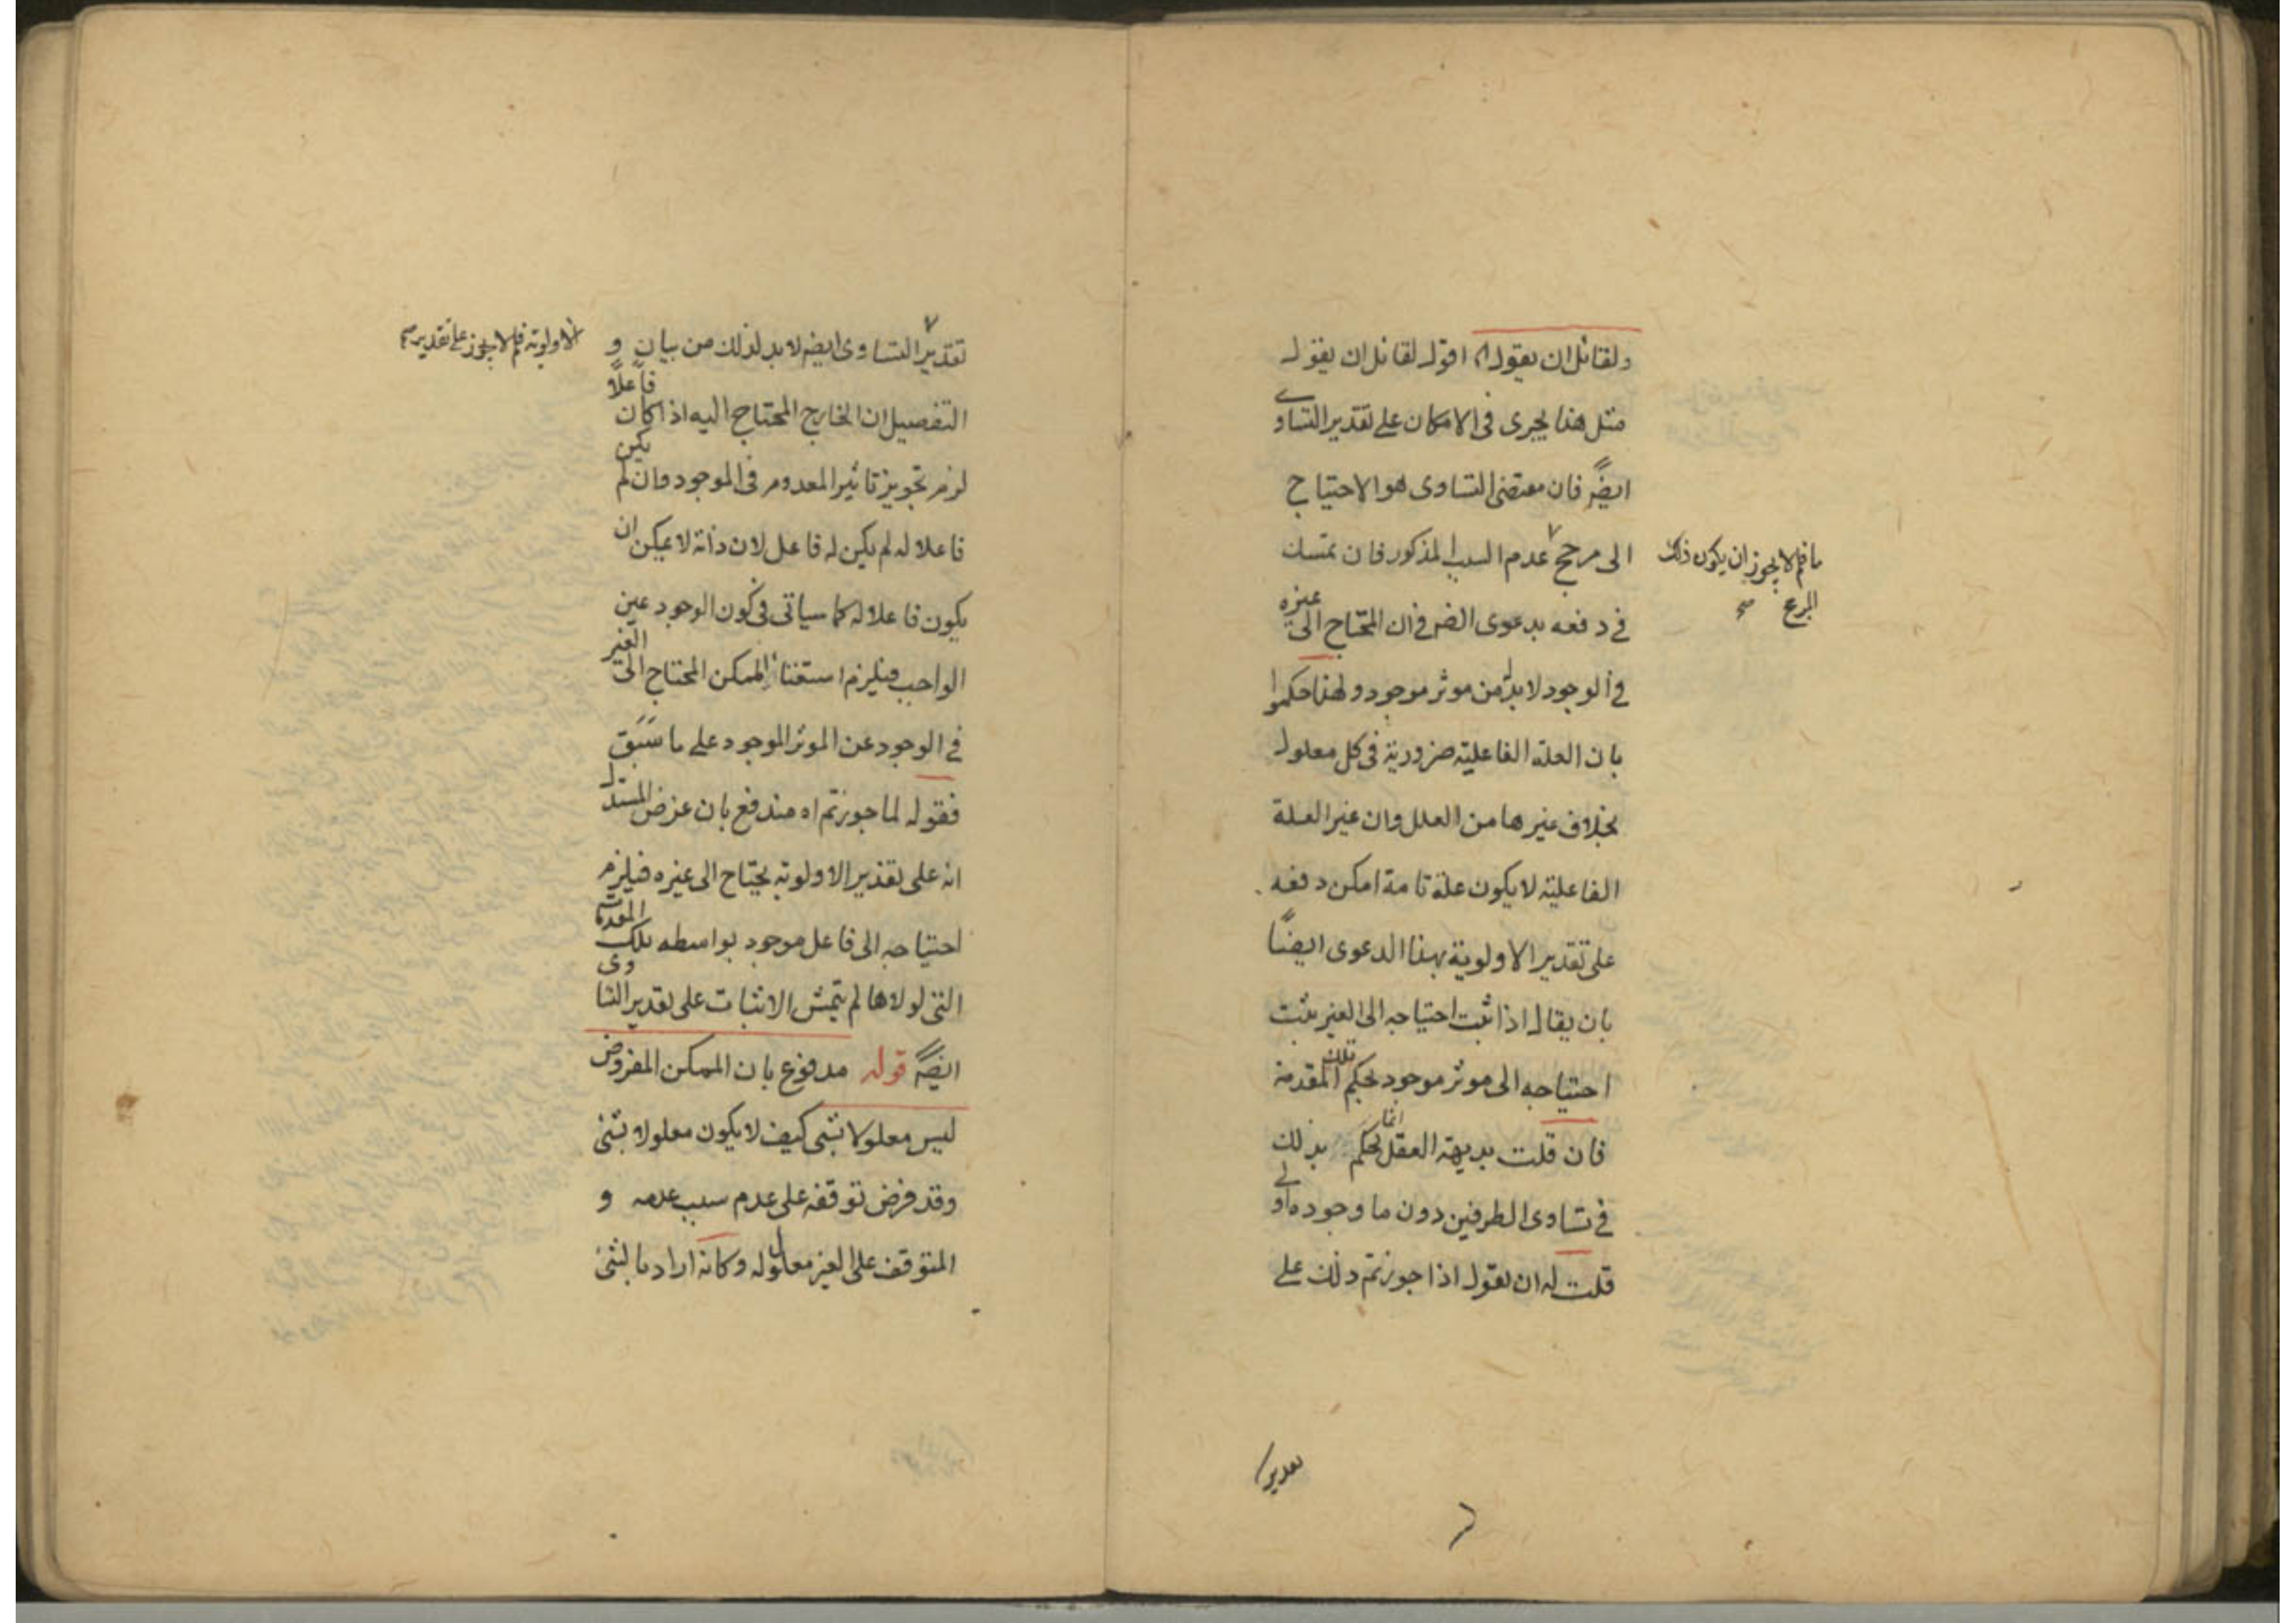 ولقائل ان يقول اه اقول لقائل ان يقول
مثل هذا يجرى فى الامكان على تقدير التساوى
ايضاً فان مقتضى التساوى هو الاحتياج
الى مرجح عدم السبب المذكور فان تمسك
ما فلم لا يجوز ان يكون ذلك
المرجح صح
فى دفعه بدعوى الضر فى ان المحتاج الى غيره
فى الوجود لا بد من موثر موجود ولهذا حكموا
بان العلة الفاعلية ضرورية فى كل معلول
بخلاف غيرها من العلل وان غير العلة
الفاعلية لا يكون علة تامة امكن دفعه
على تقدير الاولوية بهذا الدعوى ايضاً
بان يقال اذا ثبت احتياجه الى الغير يثبت
احتياجه الى موثر موجود بحكم تلك المقدمة
فان قلت بديهة العقل انما يحكم بذلك
فى تساوى الطرفين دون ما وجوده اولى
قلت له ان يقول اذا جوزتم ذلك على
تقدير
تقدير التساوى ايضا لا بد لذلك من بيان و
الاولوية فلم لا يجوز على تقدير صح
التفصيل ان الخارج المحتاج اليه اذا كان فاعلاً
لزم تجويز تاثير المعدوم فى الموجود وان لم يكن
فاعلا له لم يكن له فاعل لان ذاته لا يمكن ان
يكون فاعلا له كما سياتى فى كون الوجود عين
الواجب فيلزم استغناء الممكن المحتاج الى الغير
فى الوجود عن الموثر الموجود على ما سَبَق
فقوله لما جوزتم اه مندفع بان غرض المستدل
انه على تقدير الاولوية يحتاج الى غيره فيلزم
احتياجه الى فاعل موجود بواسطه تلك المقدمات
التى لولاها لم يتمش الاثبات على تقدير التساوى
ايضاً قوله مدفوع بان الممكن المفروض
ليس معلولا بشى كيف لا يكون معلولا بشئ
وقد فرض توقفه على عدم سبب عدمه و
المتوقف على الغير معلول له وكانه اراد بالشئ